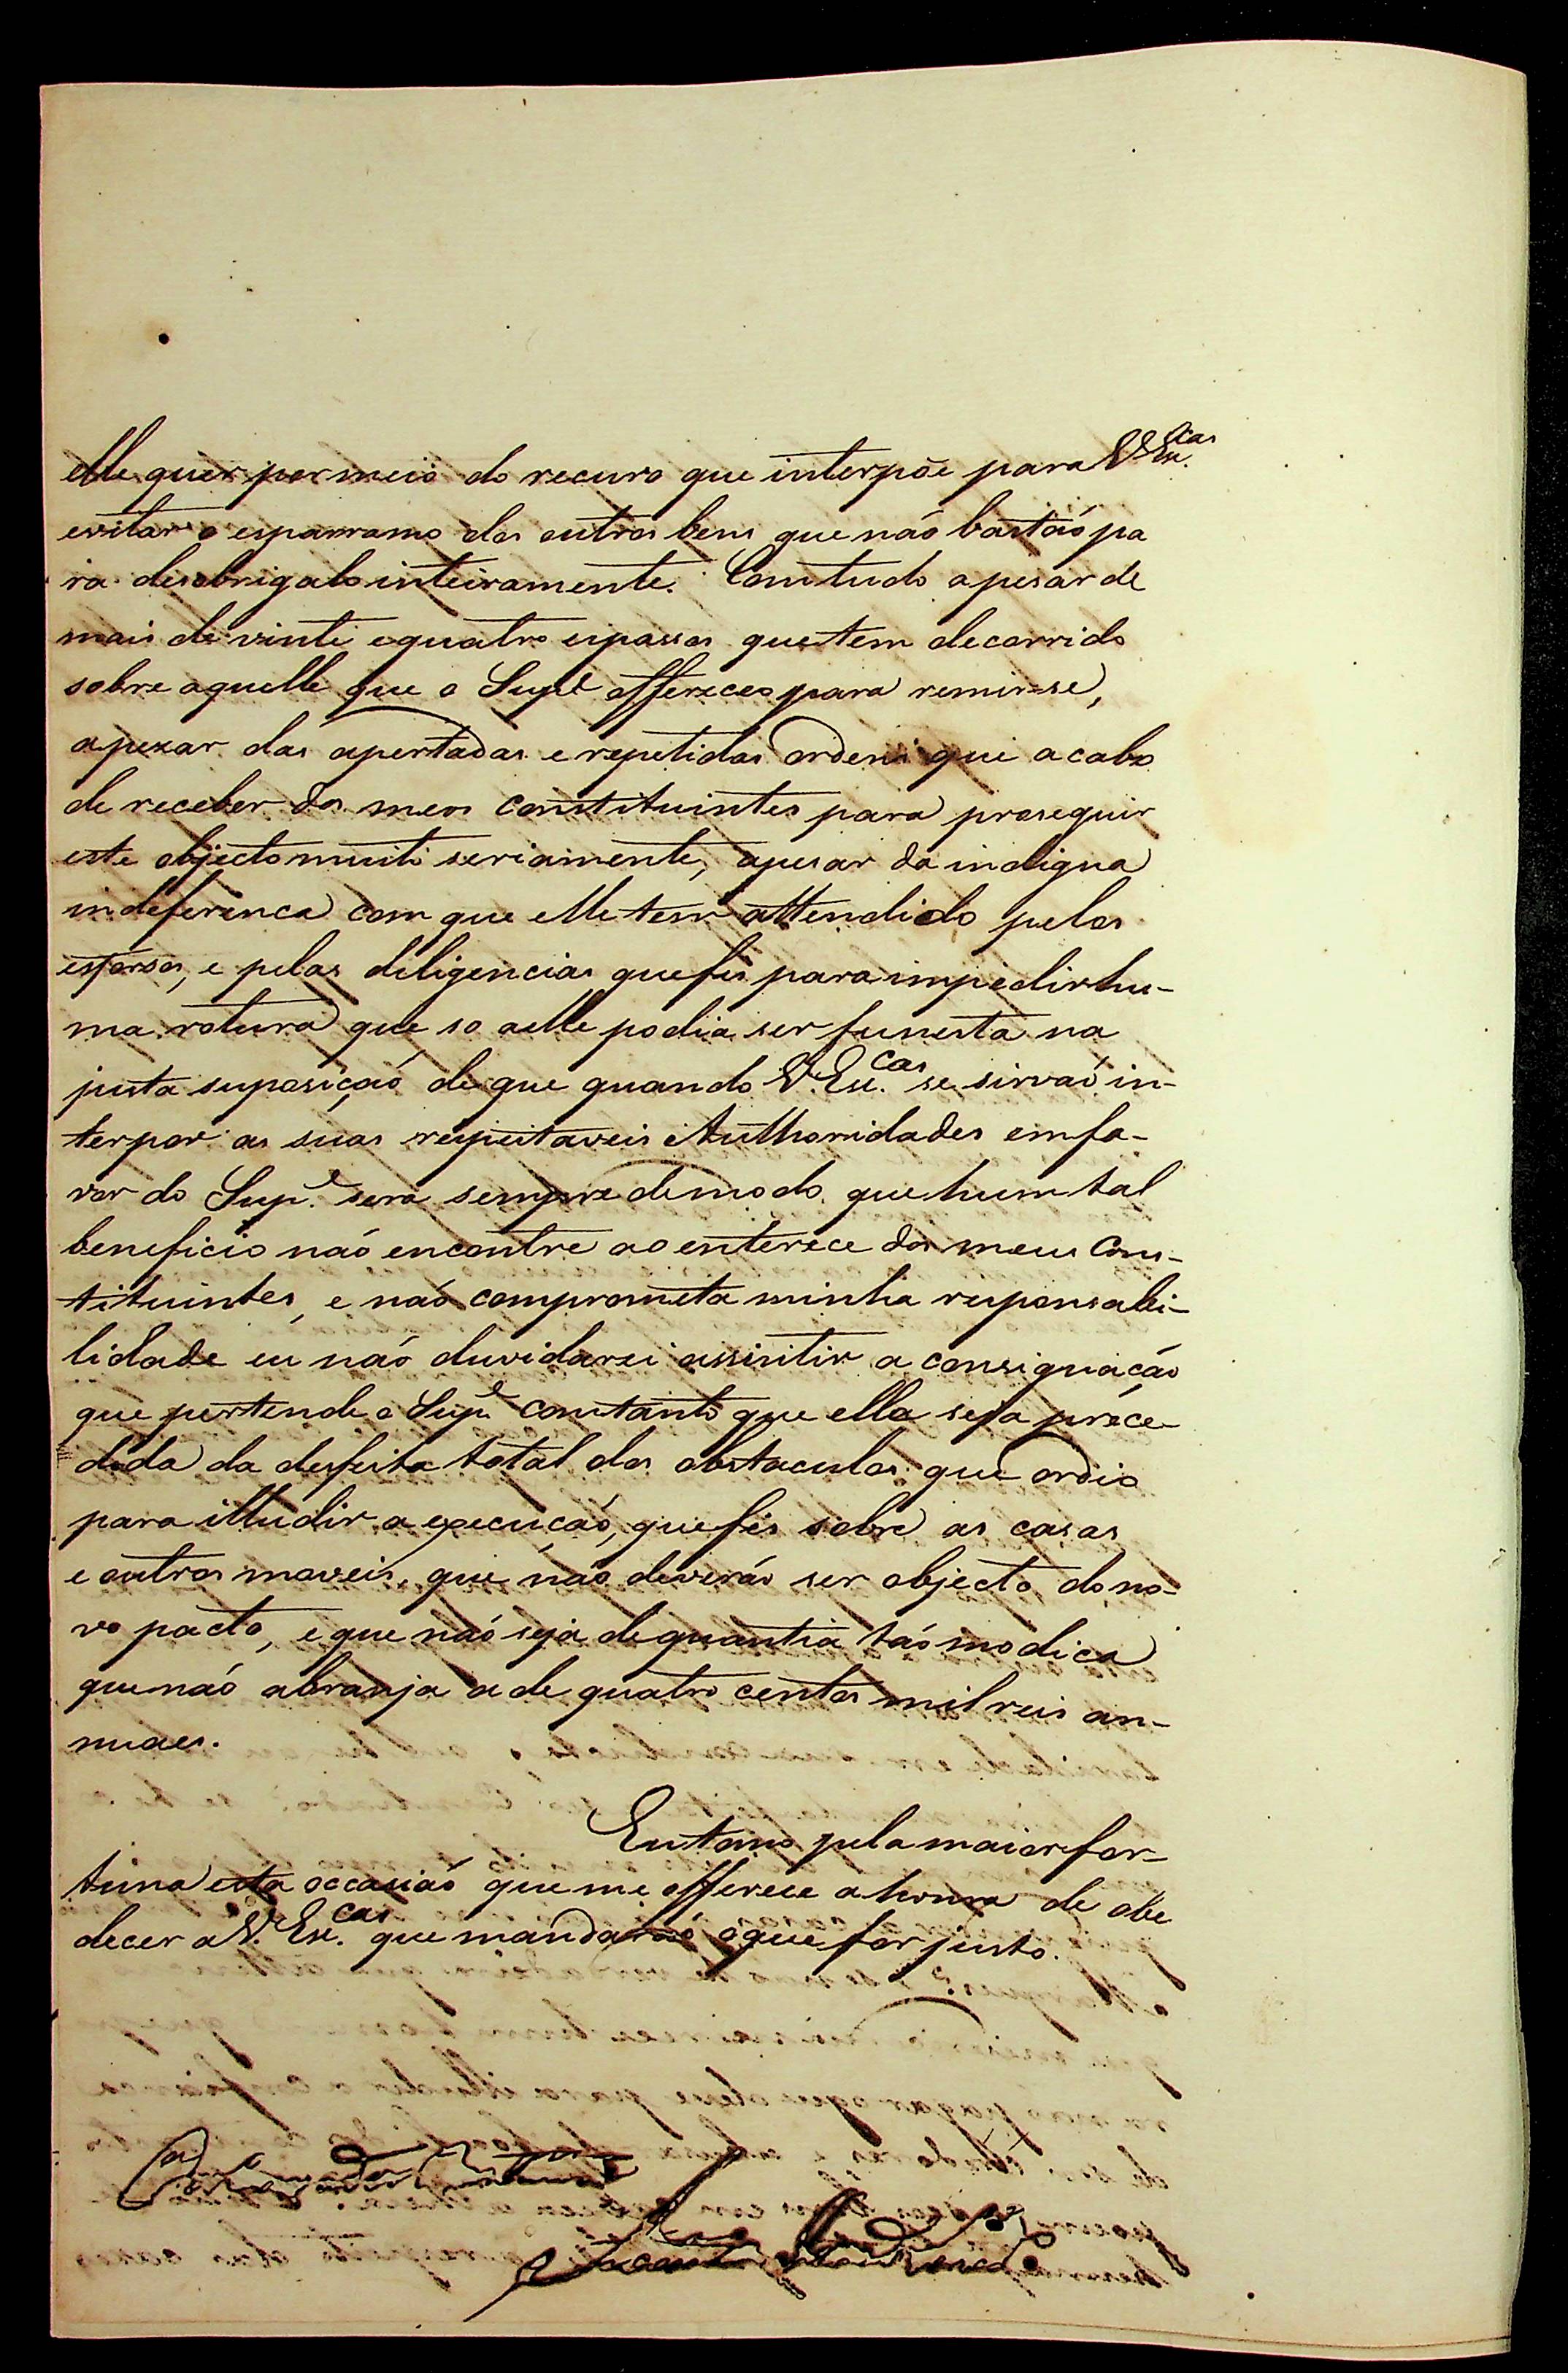 elle quer por meio do recurso que interpõe para V. Ex.cas
evitar o esparramo dos outros bens que não bastaõ pa
ra desobrigalo inteiramente. Comtudo apesar de
mais de vinte equatro espassos que tem decorrido
sobre aquelle que o Supe offereceo para remir-se,
apezar das apertadas e repetidas ordens que acabo
de receber dos meos constituintes para proseguir
este objecto muito seriamente, apesar da indigna
indeferenca com que elle tem attendido pelos
esforsos, e pelas diligencias que fis para impedir hu-
ma rotura que so a elle podia ser funesta na
justa suposiçaõ de que quando V. Ex.cas se sirvaõ in-
terpor as suas respeitaveis Authoridades em fa-
vor do Sup.e sera sempre de modo que hum tal
beneficio naõ encontre ao enterece dos meus Cons-
tituintes, e naõ comprometa minha responsabi-
lidade eu naõ duvidarei assistir a consignação
que pertende o Sup.e comtanto que ella seja prece-
dida da desfeita total dos obstaculos que ordio
para illudir a execuçaõ, que fis sobre as casas
e outros moveis, que não deverão ser objecto do no-
vo pacto, e que naõ seja de quantia taõ modica
que naõ abranja a de quatro centos mil reis an-
nuaes.
Eu tomo pela maior for-
tuna esta occasiaõ que me offerece a honra de obe
decer a V. Ex.cas que mandaraõ o que for justo.